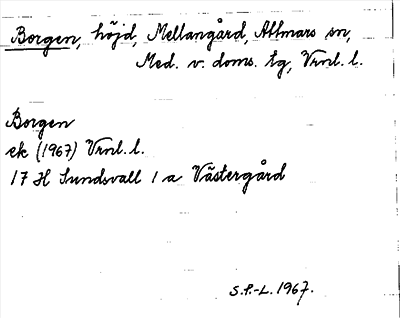 Borgen, höjd, Mellangård, Attmars sn,
Med. v. doms. tg, Vrnl. l.
Borgen
ek (1967) Vrnl. l.
17 H Sundsvall 1 a Västergård
S.P.-L. 1967.